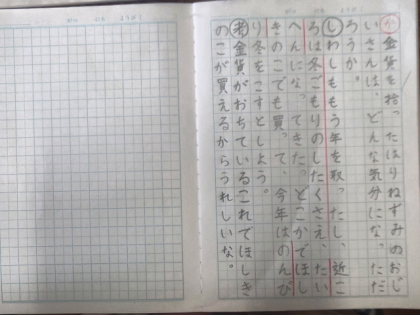 か金貨を拾ったはりねずみのおじ
いさんは、どんな気分になっただ
ろうか。
しわしももう年を取ったし、近ご
ろは冬ごもりのしたくさえ、たい
へんになってきた。どこかでほし
きのこでも買って、今年はのんび
り冬をこすとしよう。
考金貨がおちているこれでほしき
のこが買えるからうれしいな。